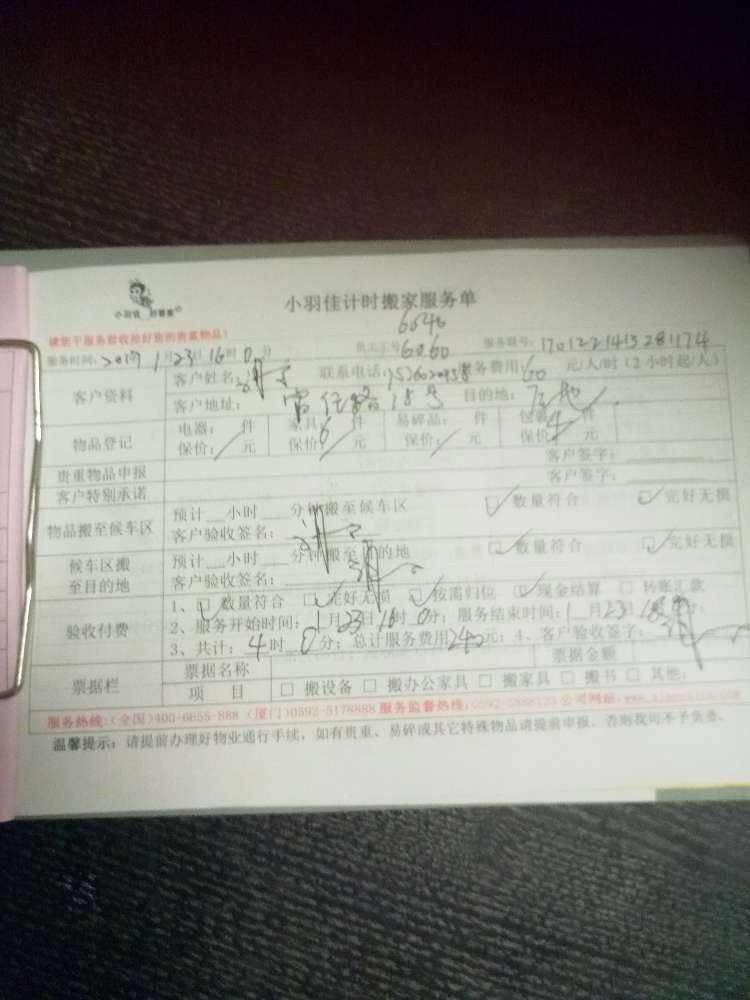 小羽佳 好管家
小羽佳计时搬家服务单
6040
请您于服务前收捡好您的贵重物品!
员工工号 6060 服务账号:
服务时间:2017 1月23日16时0分
客户资料
客户姓名: 联系电话: 服务费用:60 元/人/时(2小时起/人)
客户地址: 18号 目的地:
物品登记
电器: 件 家具:6件 易碎品: 件 包装4件
保价: 元 保价: 元 保价: 元 保价: 元
贵重物品申报 客户签字:
客户特别承诺 客户签字:
物品搬至候车区
预计 小时 分钟搬至候车区 数量符合 完好无损
客户验收签名:
候车区搬至目的地
预计 小时 分钟搬至目的地 数量符合 完好无损
客户验收签名:
验收付费
1、数量符合 完好无损 按需归位 现金结算 转账汇款
2、服务开始时间:1月23日16时0分;服务结束时间:1月23日18
3、共计:4时0分;总计服务费用240元;4、客户验收签字:
票据栏
票据名称 票据金额
项 目 搬设备 搬办公家具 搬家具 搬书 其他:
服务热线:(全国)400-6655-888 (厦门)0592-5178888 服务监督热线: 公司网站:
温馨提示:请提前办理好物业通行手续,如有贵重、易碎或其它特殊物品请提前申报,否则我司不予负责。